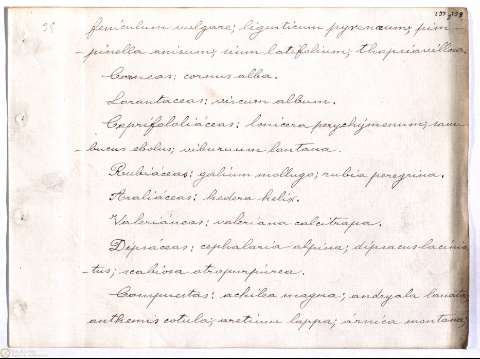 58
137-198
feniculum vulgare; ligusticum pyrenæum; pim-
-pinella anisum; sium latifolium; thapsia villosa.
Corneas: cornus alba.
Lorantaceas: viscum album.
Caprifoliáceas: lonicera perychýmenum; sam-
bucus ebolus; viburnum lantana.
Rubiáceas: galium mollugo; rubia peregrina.
Araliáceas: hedera helix.
Valeriáneas: valeriana calcitrapa.
Dipsáceas: cephalaria alpina; dipsacus lacinia-
-tus; scabiosa atropurpúrea.
Compuestas: achilea magna; andryala lanata;
anthemis cotula; arctium lappa; árnica montana;